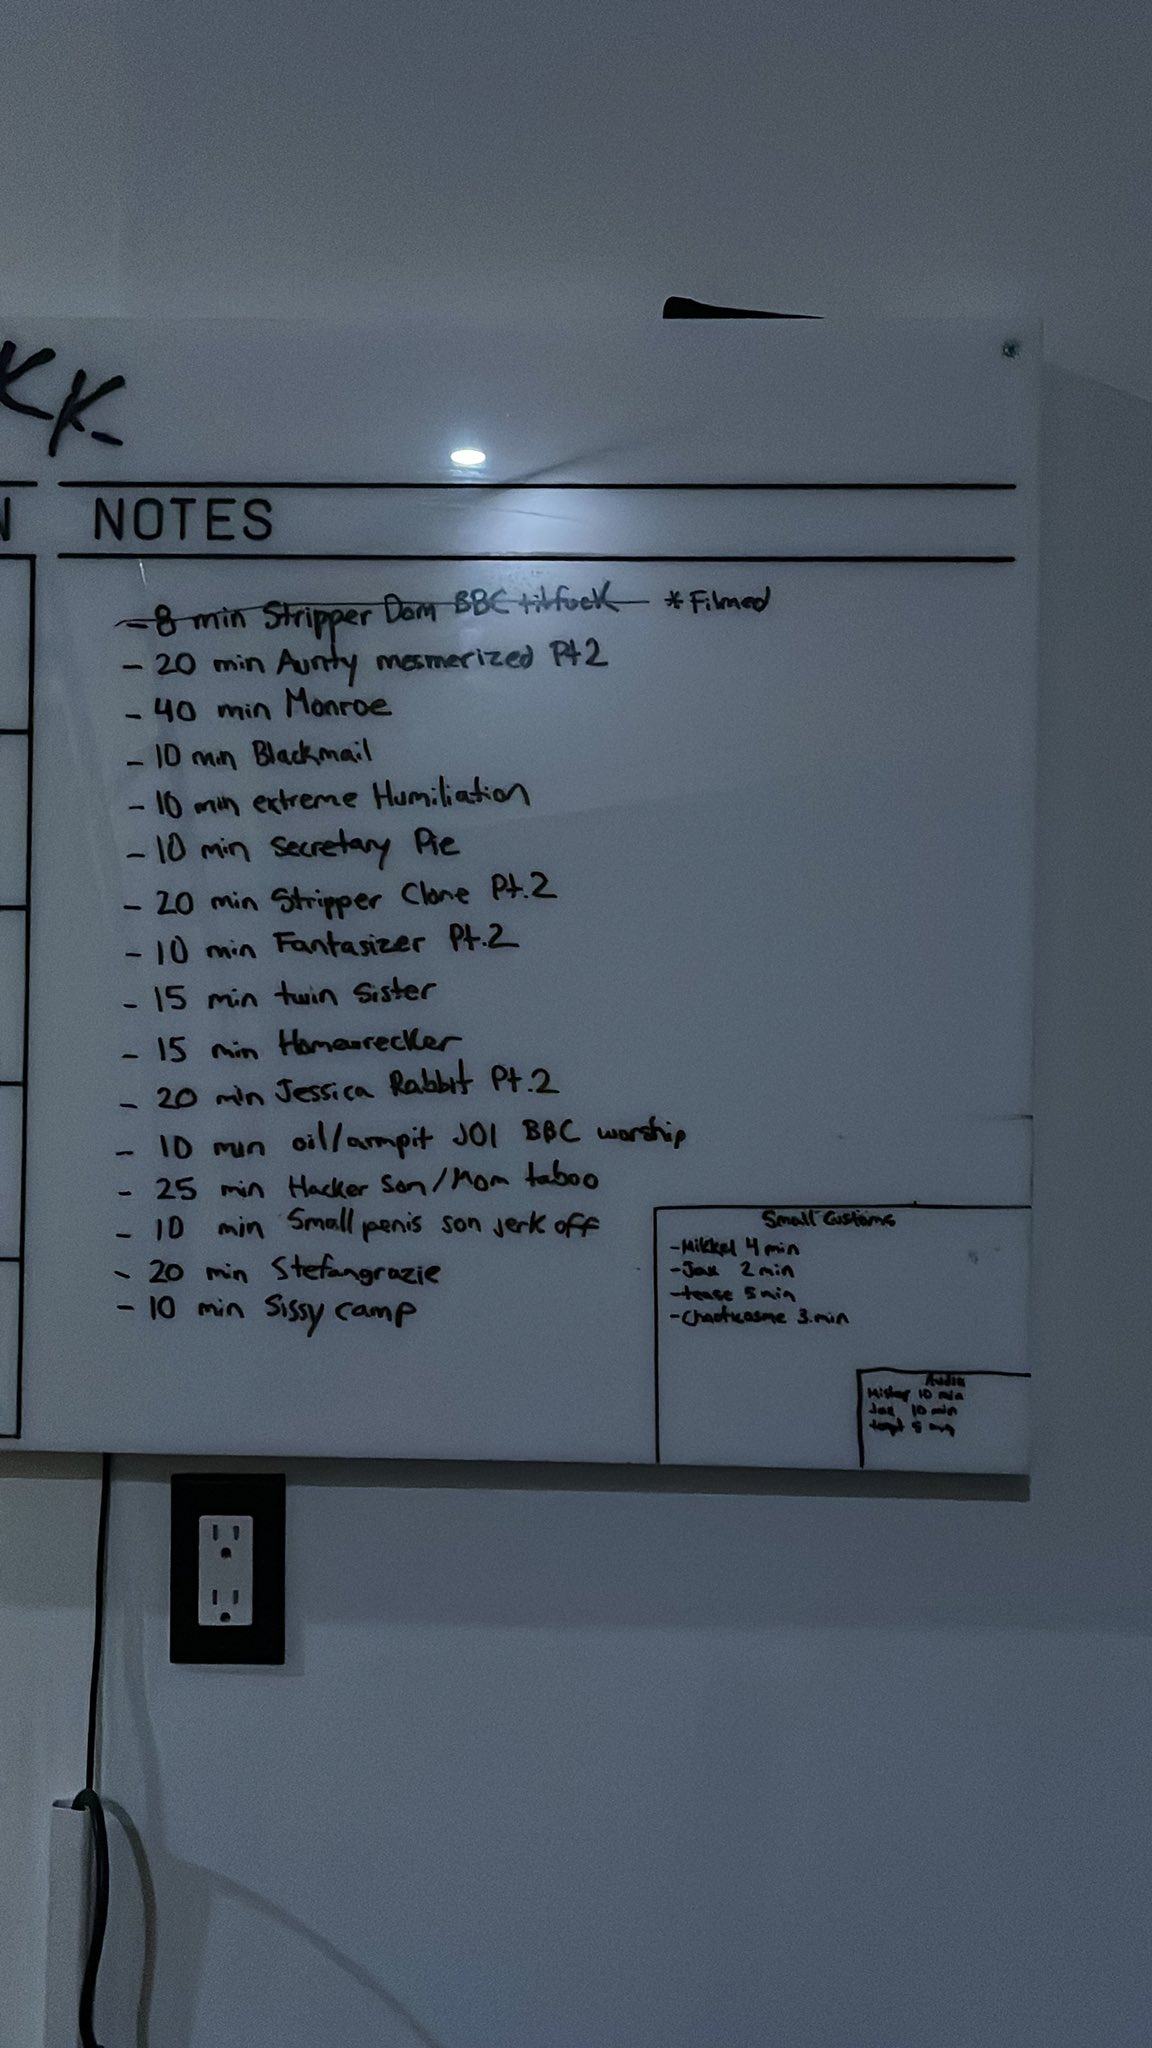 KK
N NOTES
- 8 min Stripper Dom BBC titfuck *Filmed
- 20 min Aunty mesmerized Pt2
- 40 min Monroe
- 10 min Blackmail
- 10 min extreme Humiliation
- 10 min Secretary Pie
- 20 min Stripper Clone Pt.2
- 10 min Fantasizer Pt.2
- 15 min twin Sister
- 15 min Homewrecker
- 20 min Jessica Rabbit Pt.2
- 10 min oil/armpit JOI BBC worship
- 25 min Hacker Son/Mom taboo
- 10 min Small penis son jerk off
- 20 min Stefangrazie
- 10 min Sissy camp
Small Customs
- Mikkel 4 min
- Jax 2 min
- tease 5 min
- 3 min
Audio
10 min
Jax 10 min
5 min